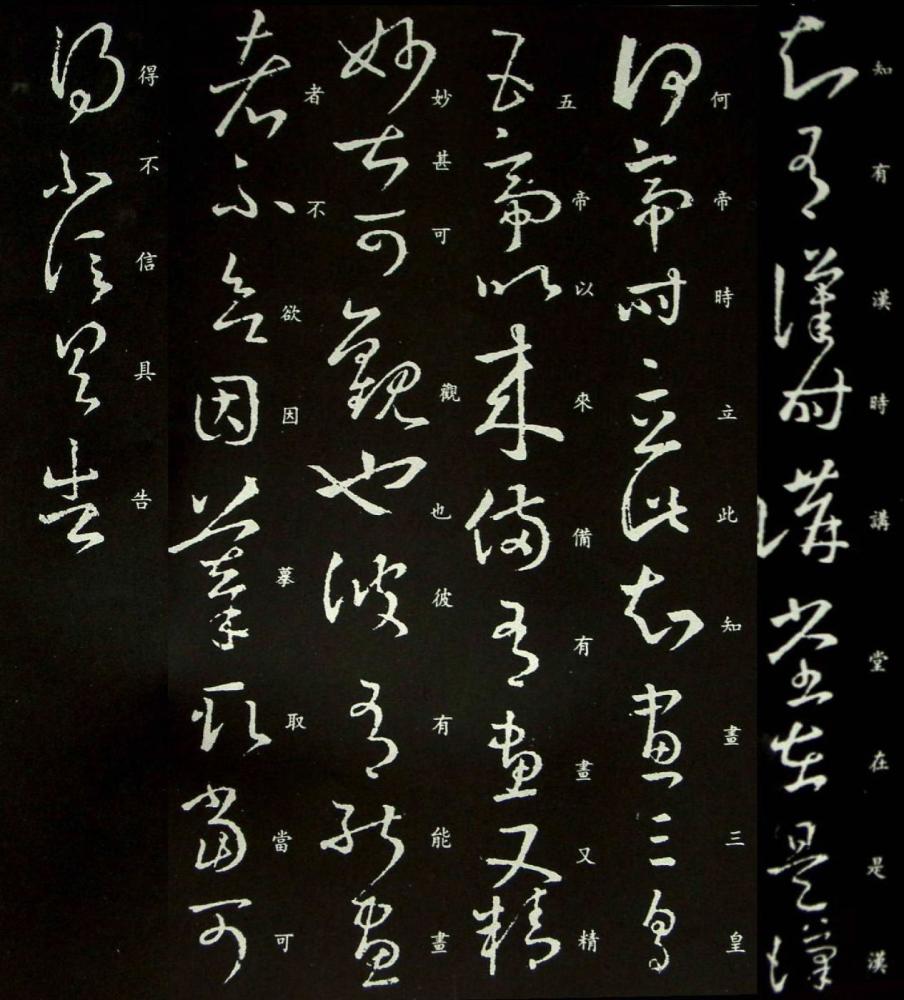 知有漢時講堂在是漢
何帝時立此知畫三皇
五帝以來備有畫又精
妙甚可觀也彼有能畫
者不欲因摹取當可
得不信具告